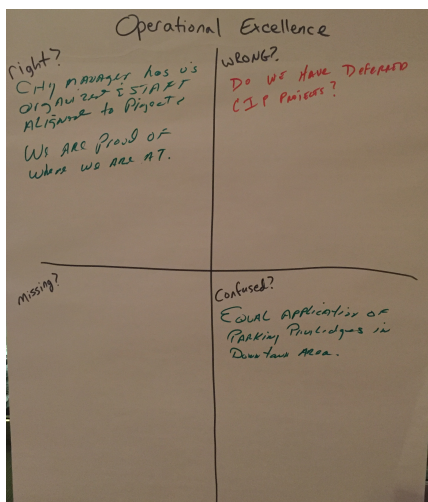 Operational Excellence
right?
City manager has us
organized & STAFF
Aligned to Projects
We are Proud of
where we are at.
WRONG?
Do we Have Deferred
CIP Projects?
Missing?
Confused?
Equal Application of
Parking Priviledges in
Downtown Area.